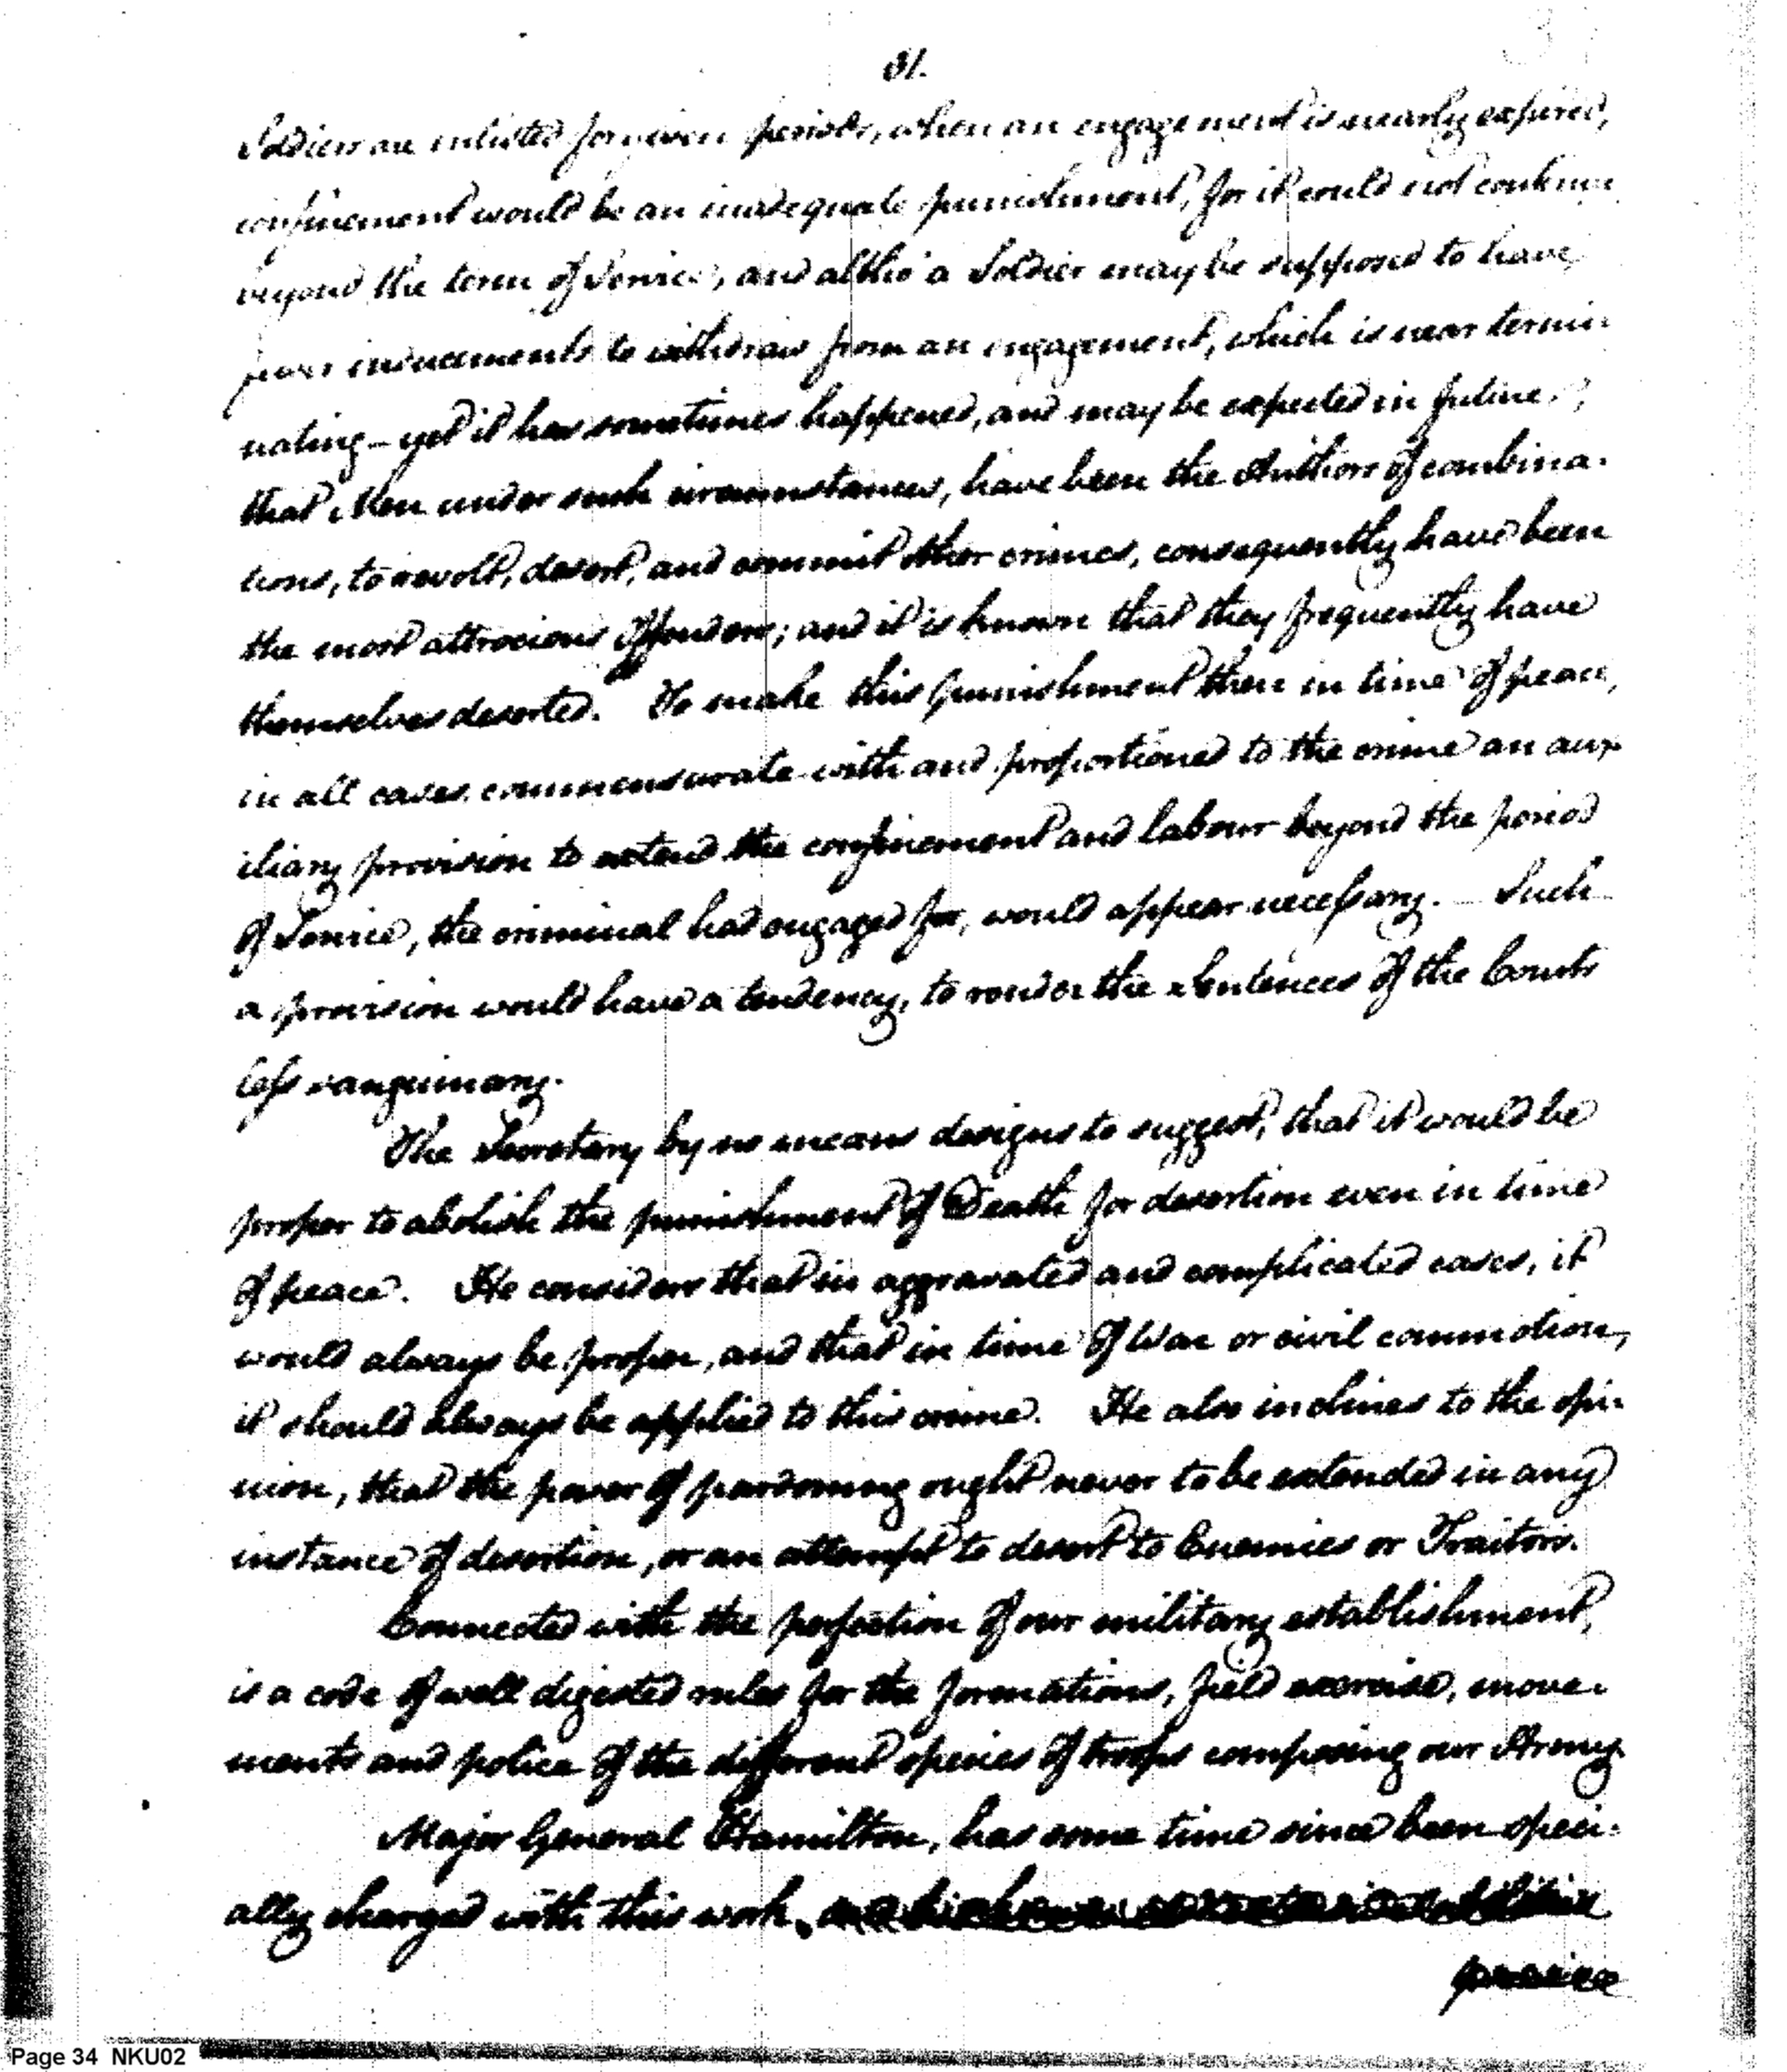 31.
Soldiers are enlisted for given periods, when an engagement is nearly expired,
confinement would be an inadequate punishment, for it could not continue
beyond the term of Service, and altho' a Soldier may be supposed to have
fewer inducements to withdraw from an engagement, which is near termi-
nating – yet it has sometimes happened, and may be expected in future,
that Men under such circumstances, have been the Authors of combina-
tions, to revolt, desert, and commit other crimes, consequently have been
the most attrocious offenders; and it is known that they frequently have
themselves deserted. To make this punishment then in time of peace,
in all cases commensurate with and proportioned to the crime an aux-
iliary provision to extend the confinement and labour beyond the period
of Service, the criminal had engaged for, would appear necessary. – Such
a provision would have a tendency, to render the Sentences of the Courts
less sanguinary.
The Secretary by no means designs to suggest, that it would be
proper to abolish the punishment of Death for desertion even in time
of peace. He considers that in aggravated and complicated cases, it
would always be proper, and that in time of War or civil commotion,
it should always be applied to this crime. He also inclines to the opi-
nion, that the power of pardoning ought never to be extended in any
instance of desertion, or an attempt to desert to Enemies or Traitors.
Connected with the perfection of our military establishment,
is a code of well digested rules for the formations, field exercise, move-
ments and police of the different species of troops composing our Army.
Major General Hamilton, has some time since been speci-
ally charged with this work,
Page 34 NKU02